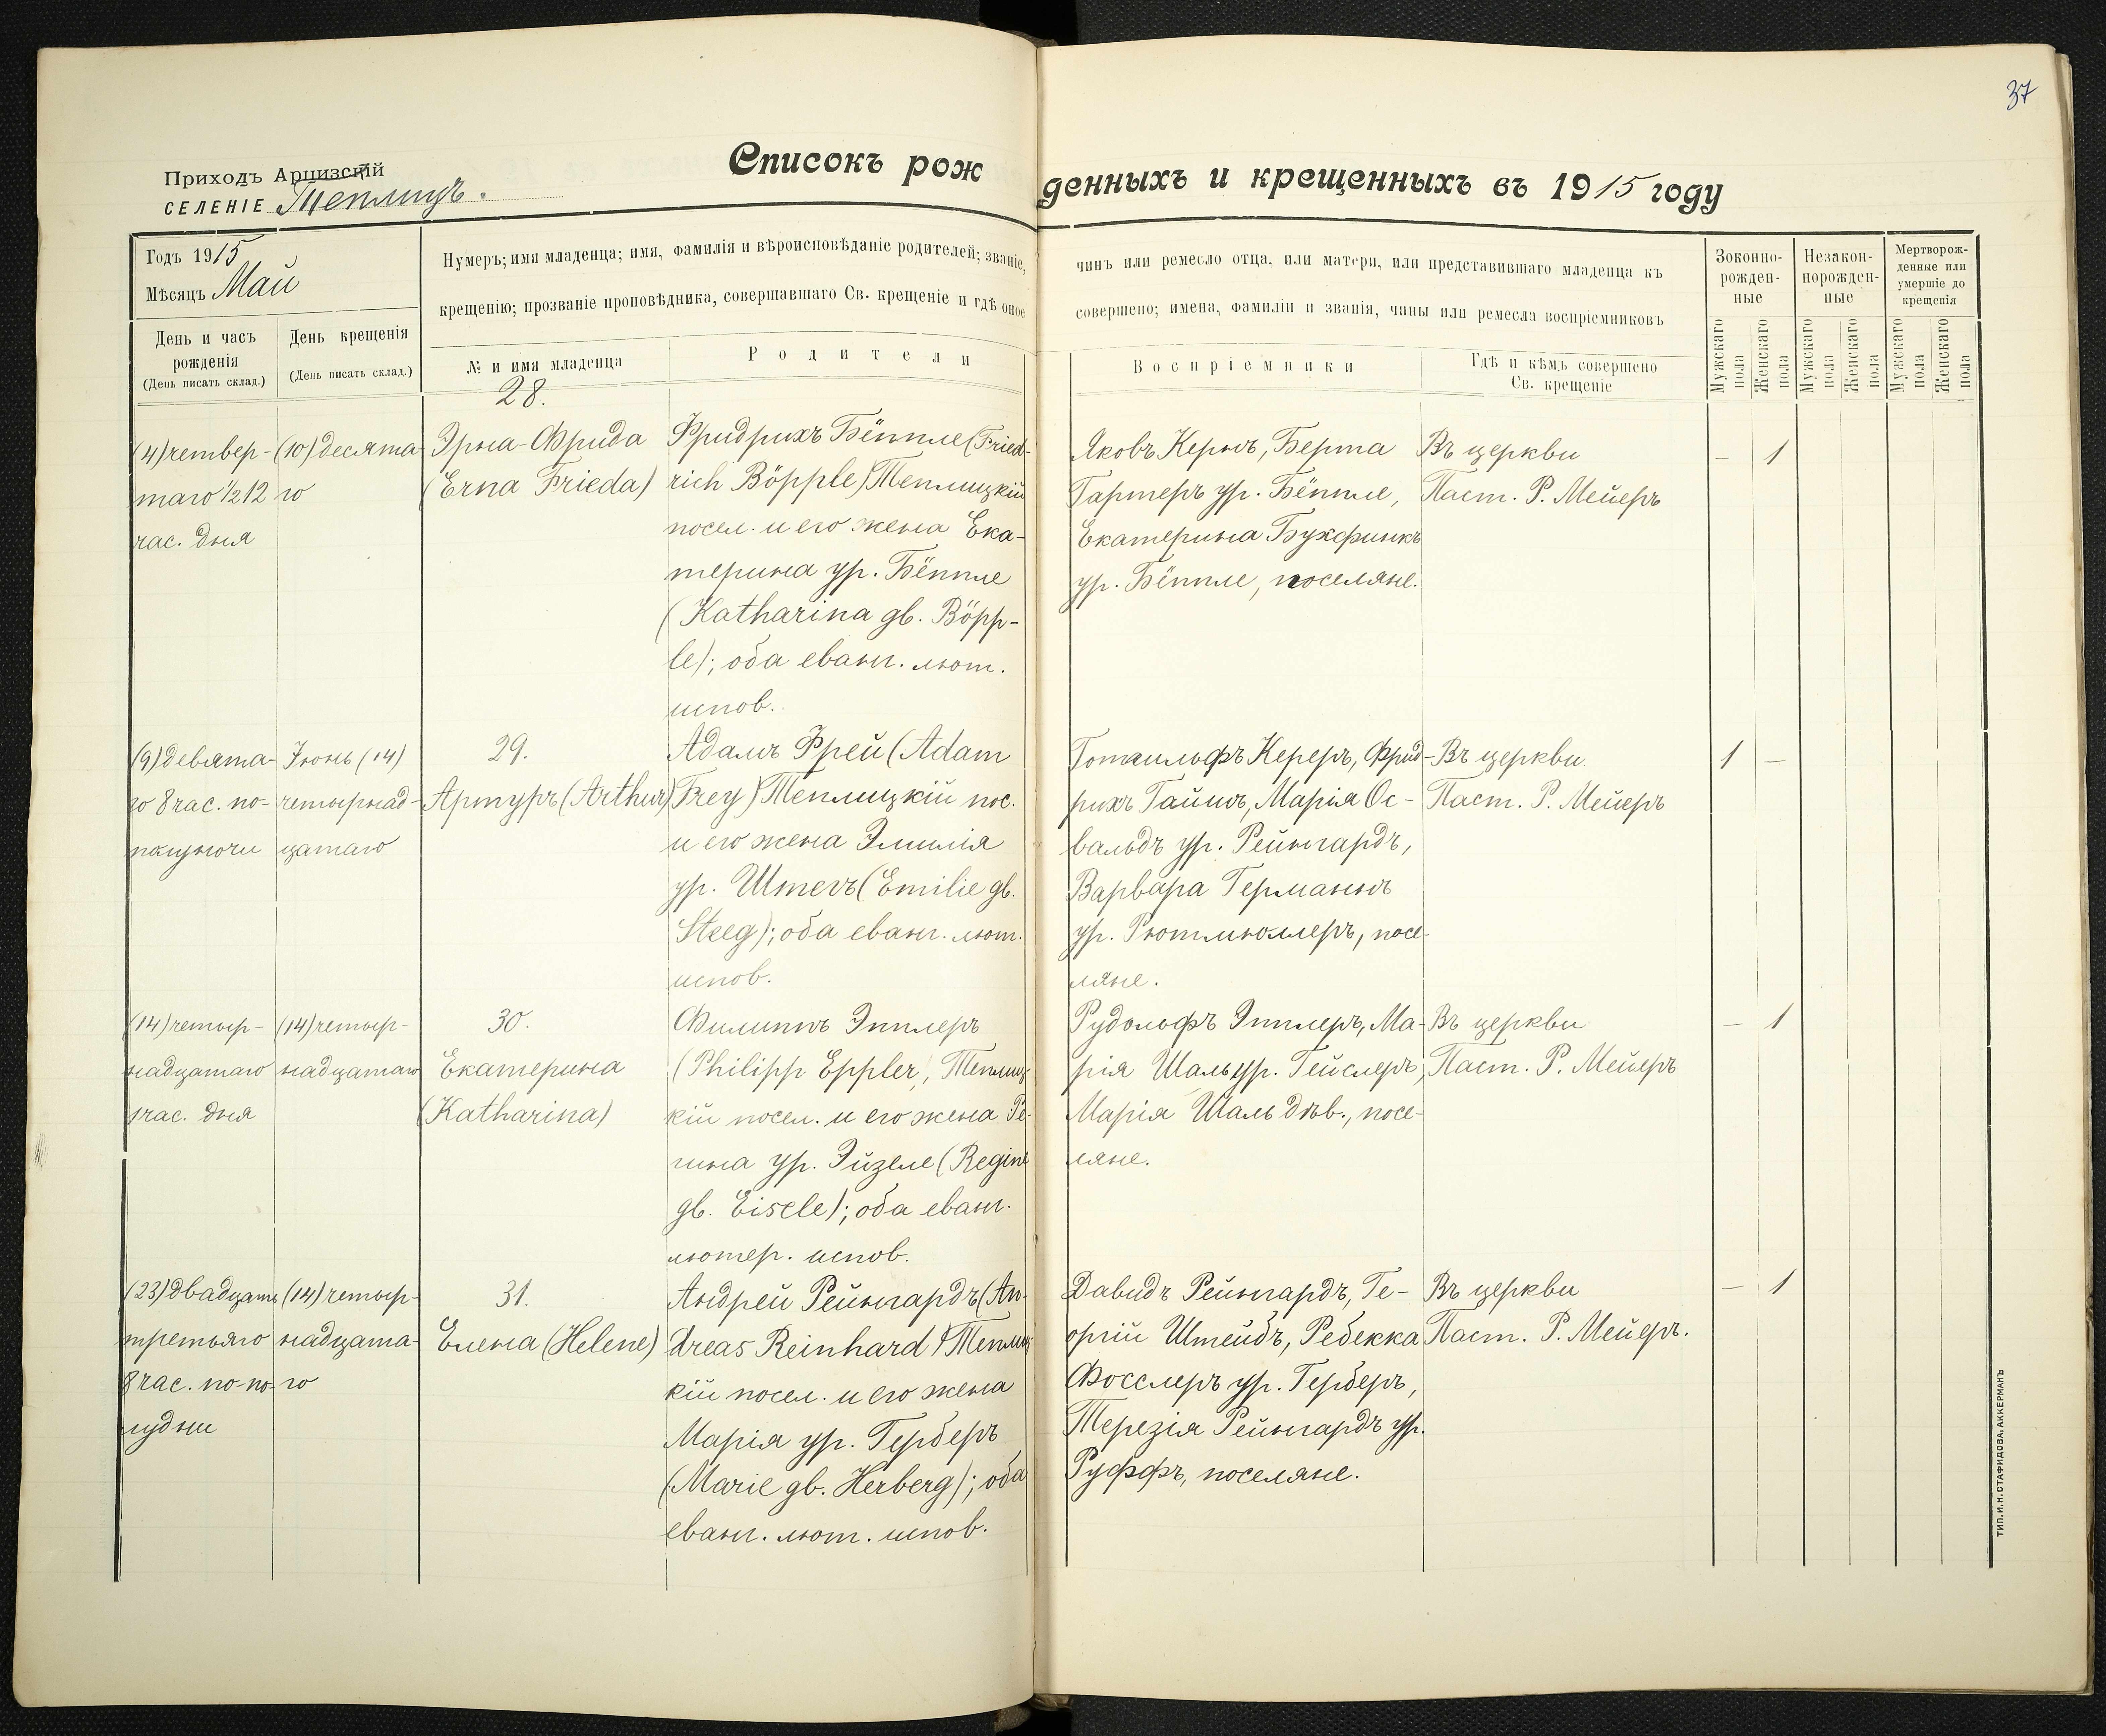 37
Приходъ Арцизскій
СЕЛЕНІЕ Теплицъ.
Списокъ рожденныхъ и крещенныхъ въ 1915 году
Годъ 1915
Мѣсяцъ Май
Нумеръ; имя младенца; имя, фамилія и вѣроисповѣданіе родителей; званіе,
крещенію; прозваніе проповѣдника, совершавшаго Св. крещеніе и гдѣ оное
чинъ или ремесло отца, или матери, или представившаго младенца къ
совершено; имена, фамиліи и званія, чины или ремесла воспріемниковъ
Зоконно-
рожден-
ные
Незакон-
норожден-
ные
Мертворож-
денные или
умершіе до
крещенія
День и часъ
рожденія
(День писать склад.)
День крещенія
(День писать склад.)
№ и имя младенца
Родители
Воспріемники
Гдѣ и кѣмъ совершено
Св. крещеніе
Мужскаго пола
Женскаго пола
Мужскаго пола
Женскаго пола
Мужскаго пола
Женскаго пола
(4) четвер-
таго ½12
час. дня
(10) десята-
го
28.
Эрна-Фрида
(Erna Frieda)
Фридрихъ Бёппле (Fried-
rich Böpple) Теплицкій
посел. и его жена Ека-
терина ур. Бёппле
(Katharina gb. Böpp-
le); оба еванг. лют.
испов.
Яковъ Кернъ, Берта
Гартеръ ур. Бёппле,
Екатерина Бухфинкъ
ур. Бёппле, поселяне.
Въ церкви
Паст. Р. Мейеръ
— 1
(9) девята-
го 8 час. по-
полуночи
Іюнь (14)
четырнад-
цатаго
29.
Артуръ (Arthur)
Адамъ Фрей (Adam
Frey) Теплицкій пос.
и его жена Эмилія
ур. Штегъ (Emilie gb.
Steeg); оба еванг. лют.
испов.
Готгильфъ Кереръ, Фрид-
рихъ Гайнъ, Марія Ос-
вальдъ ур. Рейнгардъ,
Варвара Германнъ
ур. Рютмюллеръ, посе-
ляне.
Въ церкви
Паст. Р. Мейеръ
1 —
(14) четыр-
надцатаго
1 час. дня
(14) четыр-
надцатаго
30.
Екатерина
(Katharina)
Филиппъ Эпплеръ
(Philipp Eppler), Теплиц-
кій посел. и его жена Ре-
гина ур. Эйзеле (Regine
gb. Eisele); оба еванг.
лютер. испов.
Рудольфъ Эпплеръ, Ма-
рія Шаль ур. Гейслеръ,
Марія Шаль дѣв., посе-
ляне.
Въ церкви
Паст. Р. Мейеръ
— 1
(23) двадцать
третьяго
8 час. по-по-
лудни
(14) четыр-
надцата-
го
31.
Елена (Helene)
Андрей Рейнгардъ (An-
dreas Reinhard) Теплиц
кій посел. и его жена
Марія ур. Герберъ
(Marie gb. Herberg); оба
еванг. лют. испов.
Давидъ Рейнгардъ, Ге-
оргій Штейбъ, Ребекка
Фосслеръ ур. Герберъ,
Терезія Рейнгардъ ур.
Руффъ, поселяне.
Въ церкви
Паст. Р. Мейеръ.
— 1
ТИП. И. Н. СТАФИДОВА. АККЕРМАНЪ